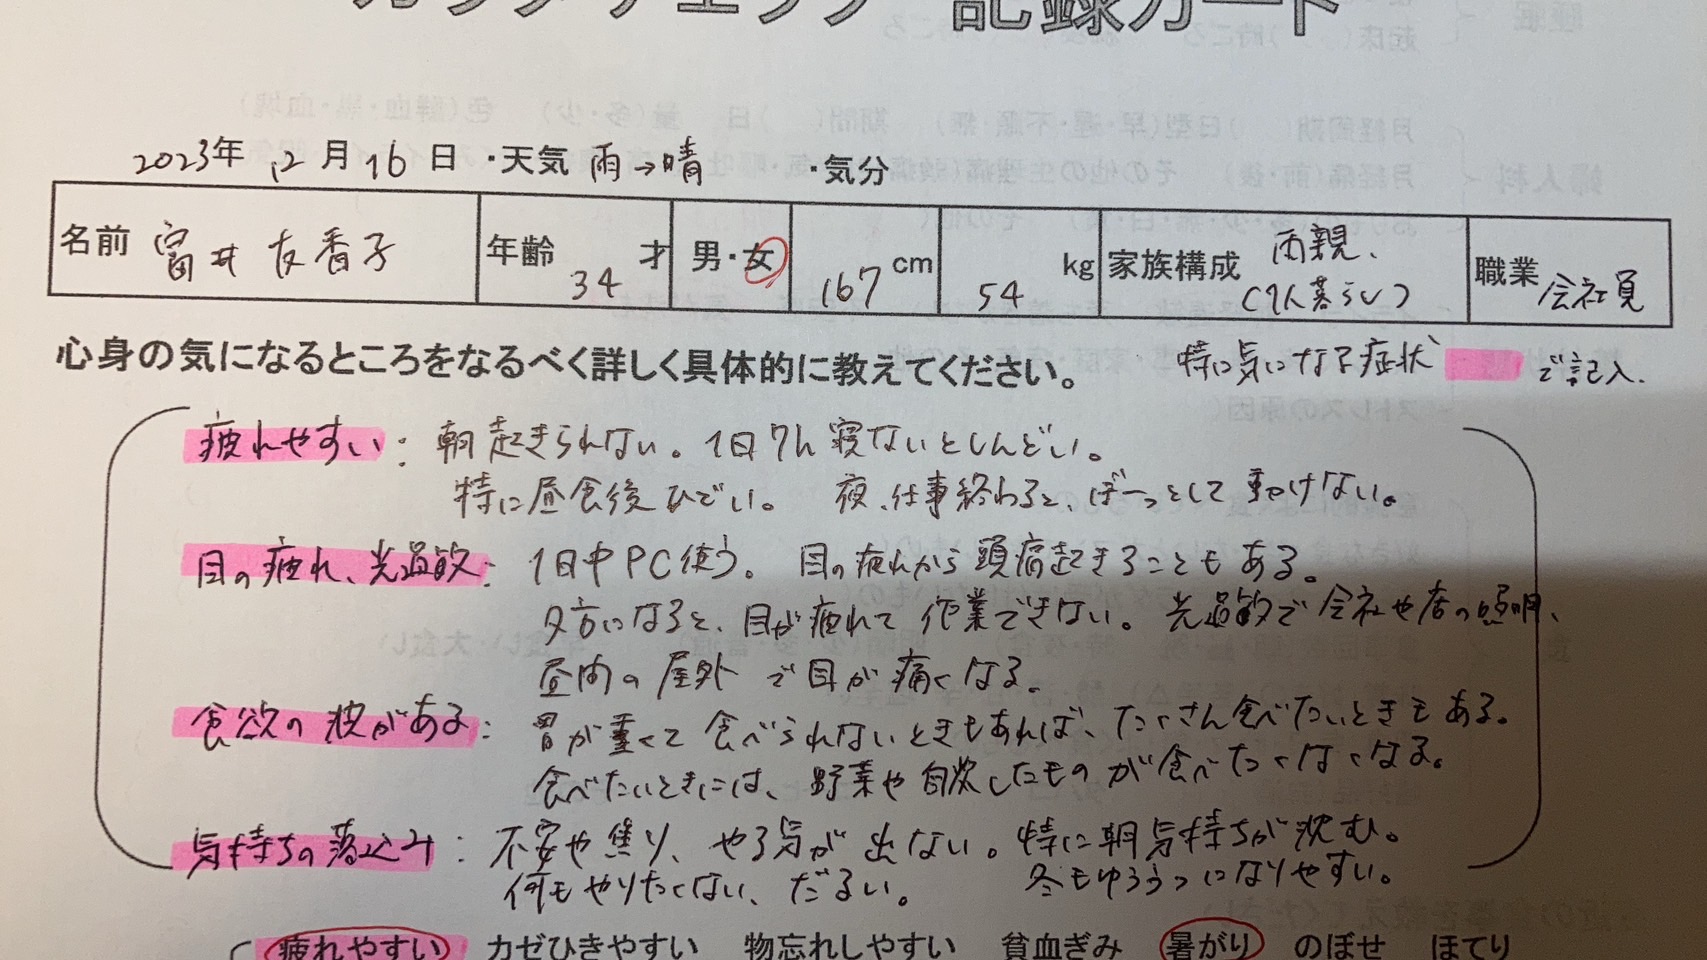 カラダチェック 記録カード
2023年 12月16日 ・天気 雨→晴 ・気分
名前 富井 友香子 年齢 34 才 男・女 167 cm 54 kg 家族構成 両親、(1人暮らし) 職業 会社員
心身の気になるところをなるべく詳しく具体的に教えてください。 特に気になる症状 で記入.
疲れやすい: 朝起きられない。1日7h寝ないとしんどい。
特に昼食後ひどい。 夜、仕事終わると、ぼーっとして動けない。
目の疲れ、光過敏: 1日中PC使う。 目の疲れから頭痛起きることもある。
夕方になると、目が疲れて作業できない。 光過敏で会社や店の照明、
昼間の屋外で目が痛くなる。
食欲の波がある: 胃が重くて食べられないときもあれば、たくさん食べたいときもある。
食べたいときには、野菜や自炊したものが食べたくなくなる。
気持ちの落込み: 不安や焦り、やる気が出ない。特に朝気持ちが沈む。
何もやりたくない、だるい。 冬もゆううつになりやすい。
疲れやすい カゼひきやすい 物忘れしやすい 貧血ぎみ 暑がり のぼせ ほてり